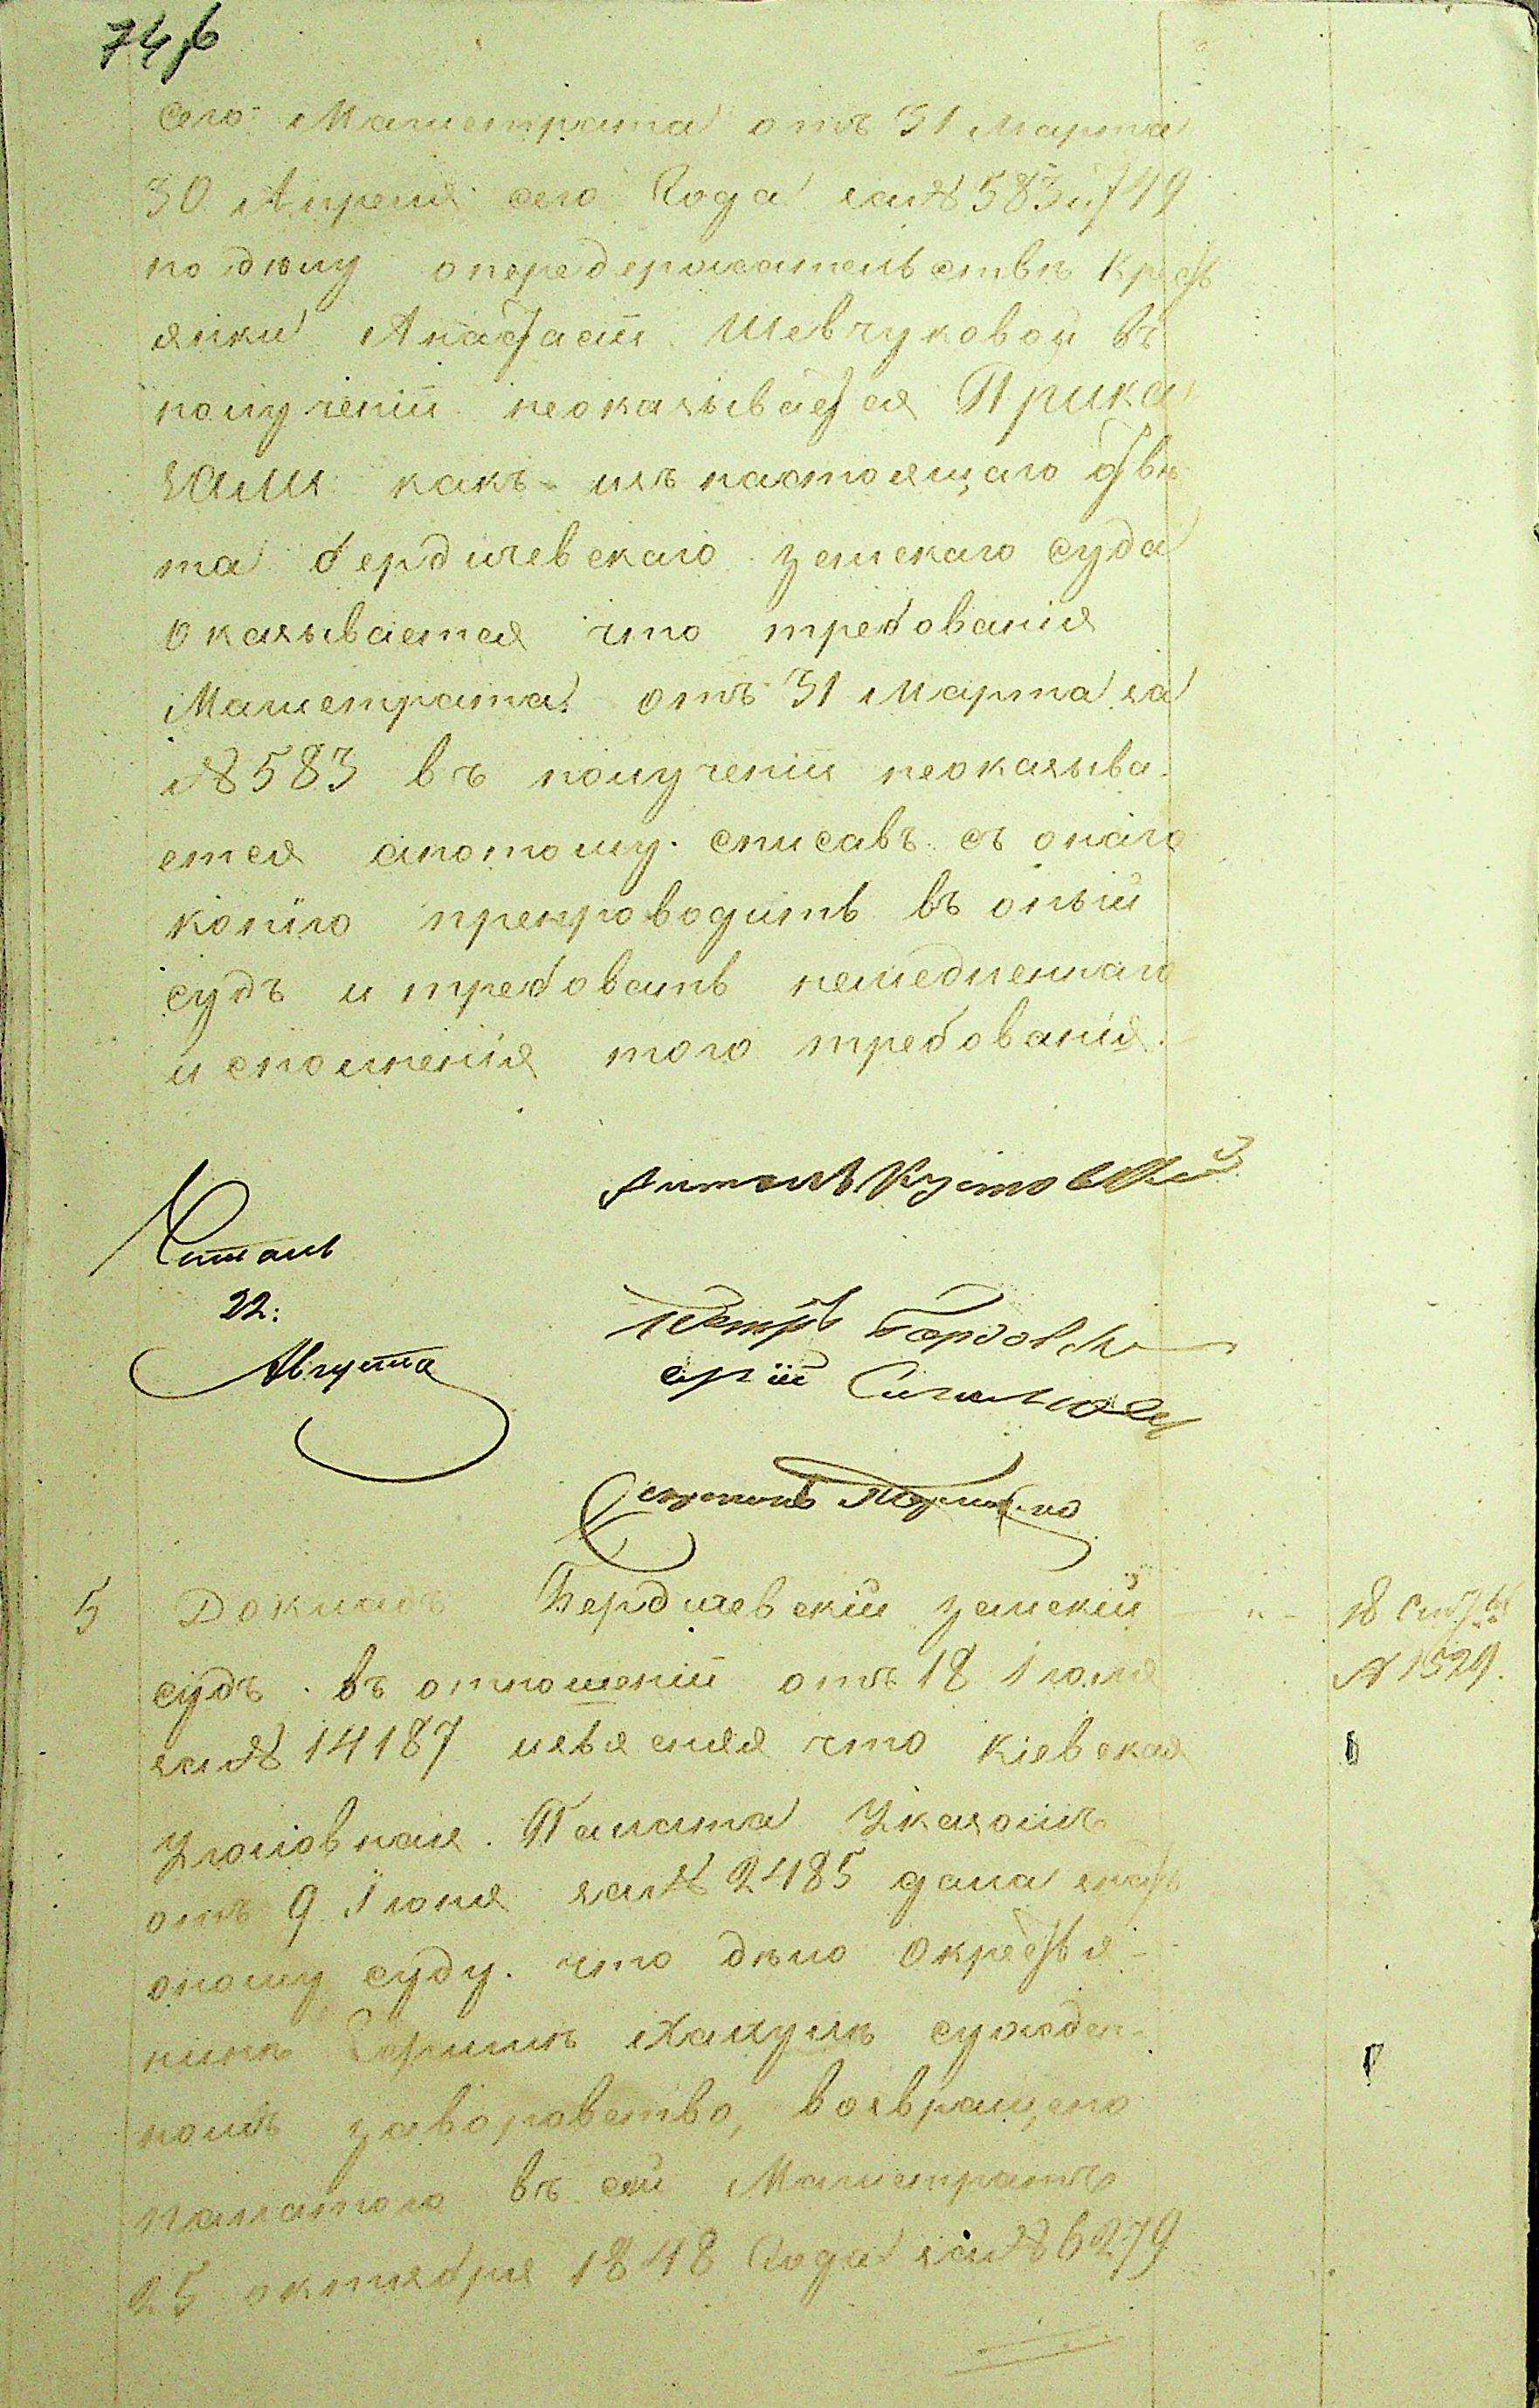 сего Магистрата отъ 31 Марта
30 Апреля сего года за№ 583 и 749
по дѣлу опередержательствѣ крест
янки Анастасіи Шевчуковой въ
полученіи неоказывается Прика
зали какъ изъ настоящаго отвѣ
та бердичевскаго земскаго суда
оказывается что требованія
Магистрата отъ 31 Марта за
№ 583 въ полученіи неоказыва
ется апотому списавъ съ онаго
копію препроводить въ оный
судъ и требовать немедленнаго
исполненія того требованія.
Читалъ
22:
Августа
5 Докладъ Бердичевскій земскій
18 №1529.
судъ въ отношеніи отъ 18 Іюля
за№ 14187 изъясняя что кіевская
Уголовная Палата Указомъ
отъ 9 Іюня за№ 2485 дала знать
оному суду что дѣло окрестья
нинѣ сужден
номъ заворовство, возвращено
палатою въ сей Магистратъ
25 октября 1848 года за№ 6279